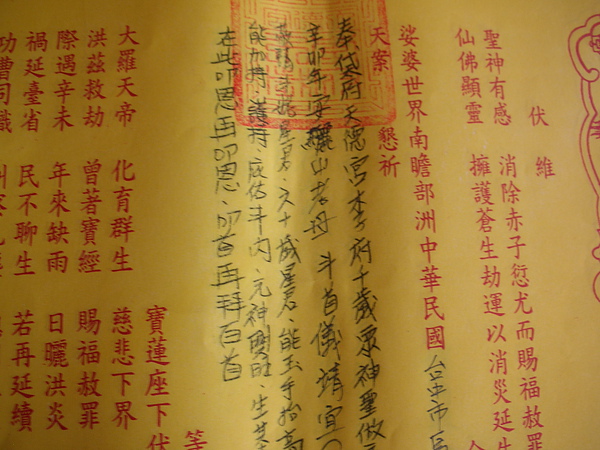 伏維
聖神有感　消除赤子愆尤而賜福赦罪
仙佛顯靈　擁護蒼生劫運以消災延生
娑婆世界南瞻部洲中華民國台中市
天案　懇祈
奉貸府天儒宮李府千歲眾神聖做
辛卯年安驪山老母　斗首儀靖宜
歲星君、六十歲星君、能玉手抬高
能加持、護持、庇佑斗內、元神興旺、生
在此叩恩再叩恩、叩首再拜百首
寶蓮座下伏
大羅天帝　化育群生　慈悲下界
洪茲救劫　曾著寶經　賜福赦罪
際遇辛未　年來缺雨　日曬洪炎
禍延臺省　民不聊生　若再延續
功曹司